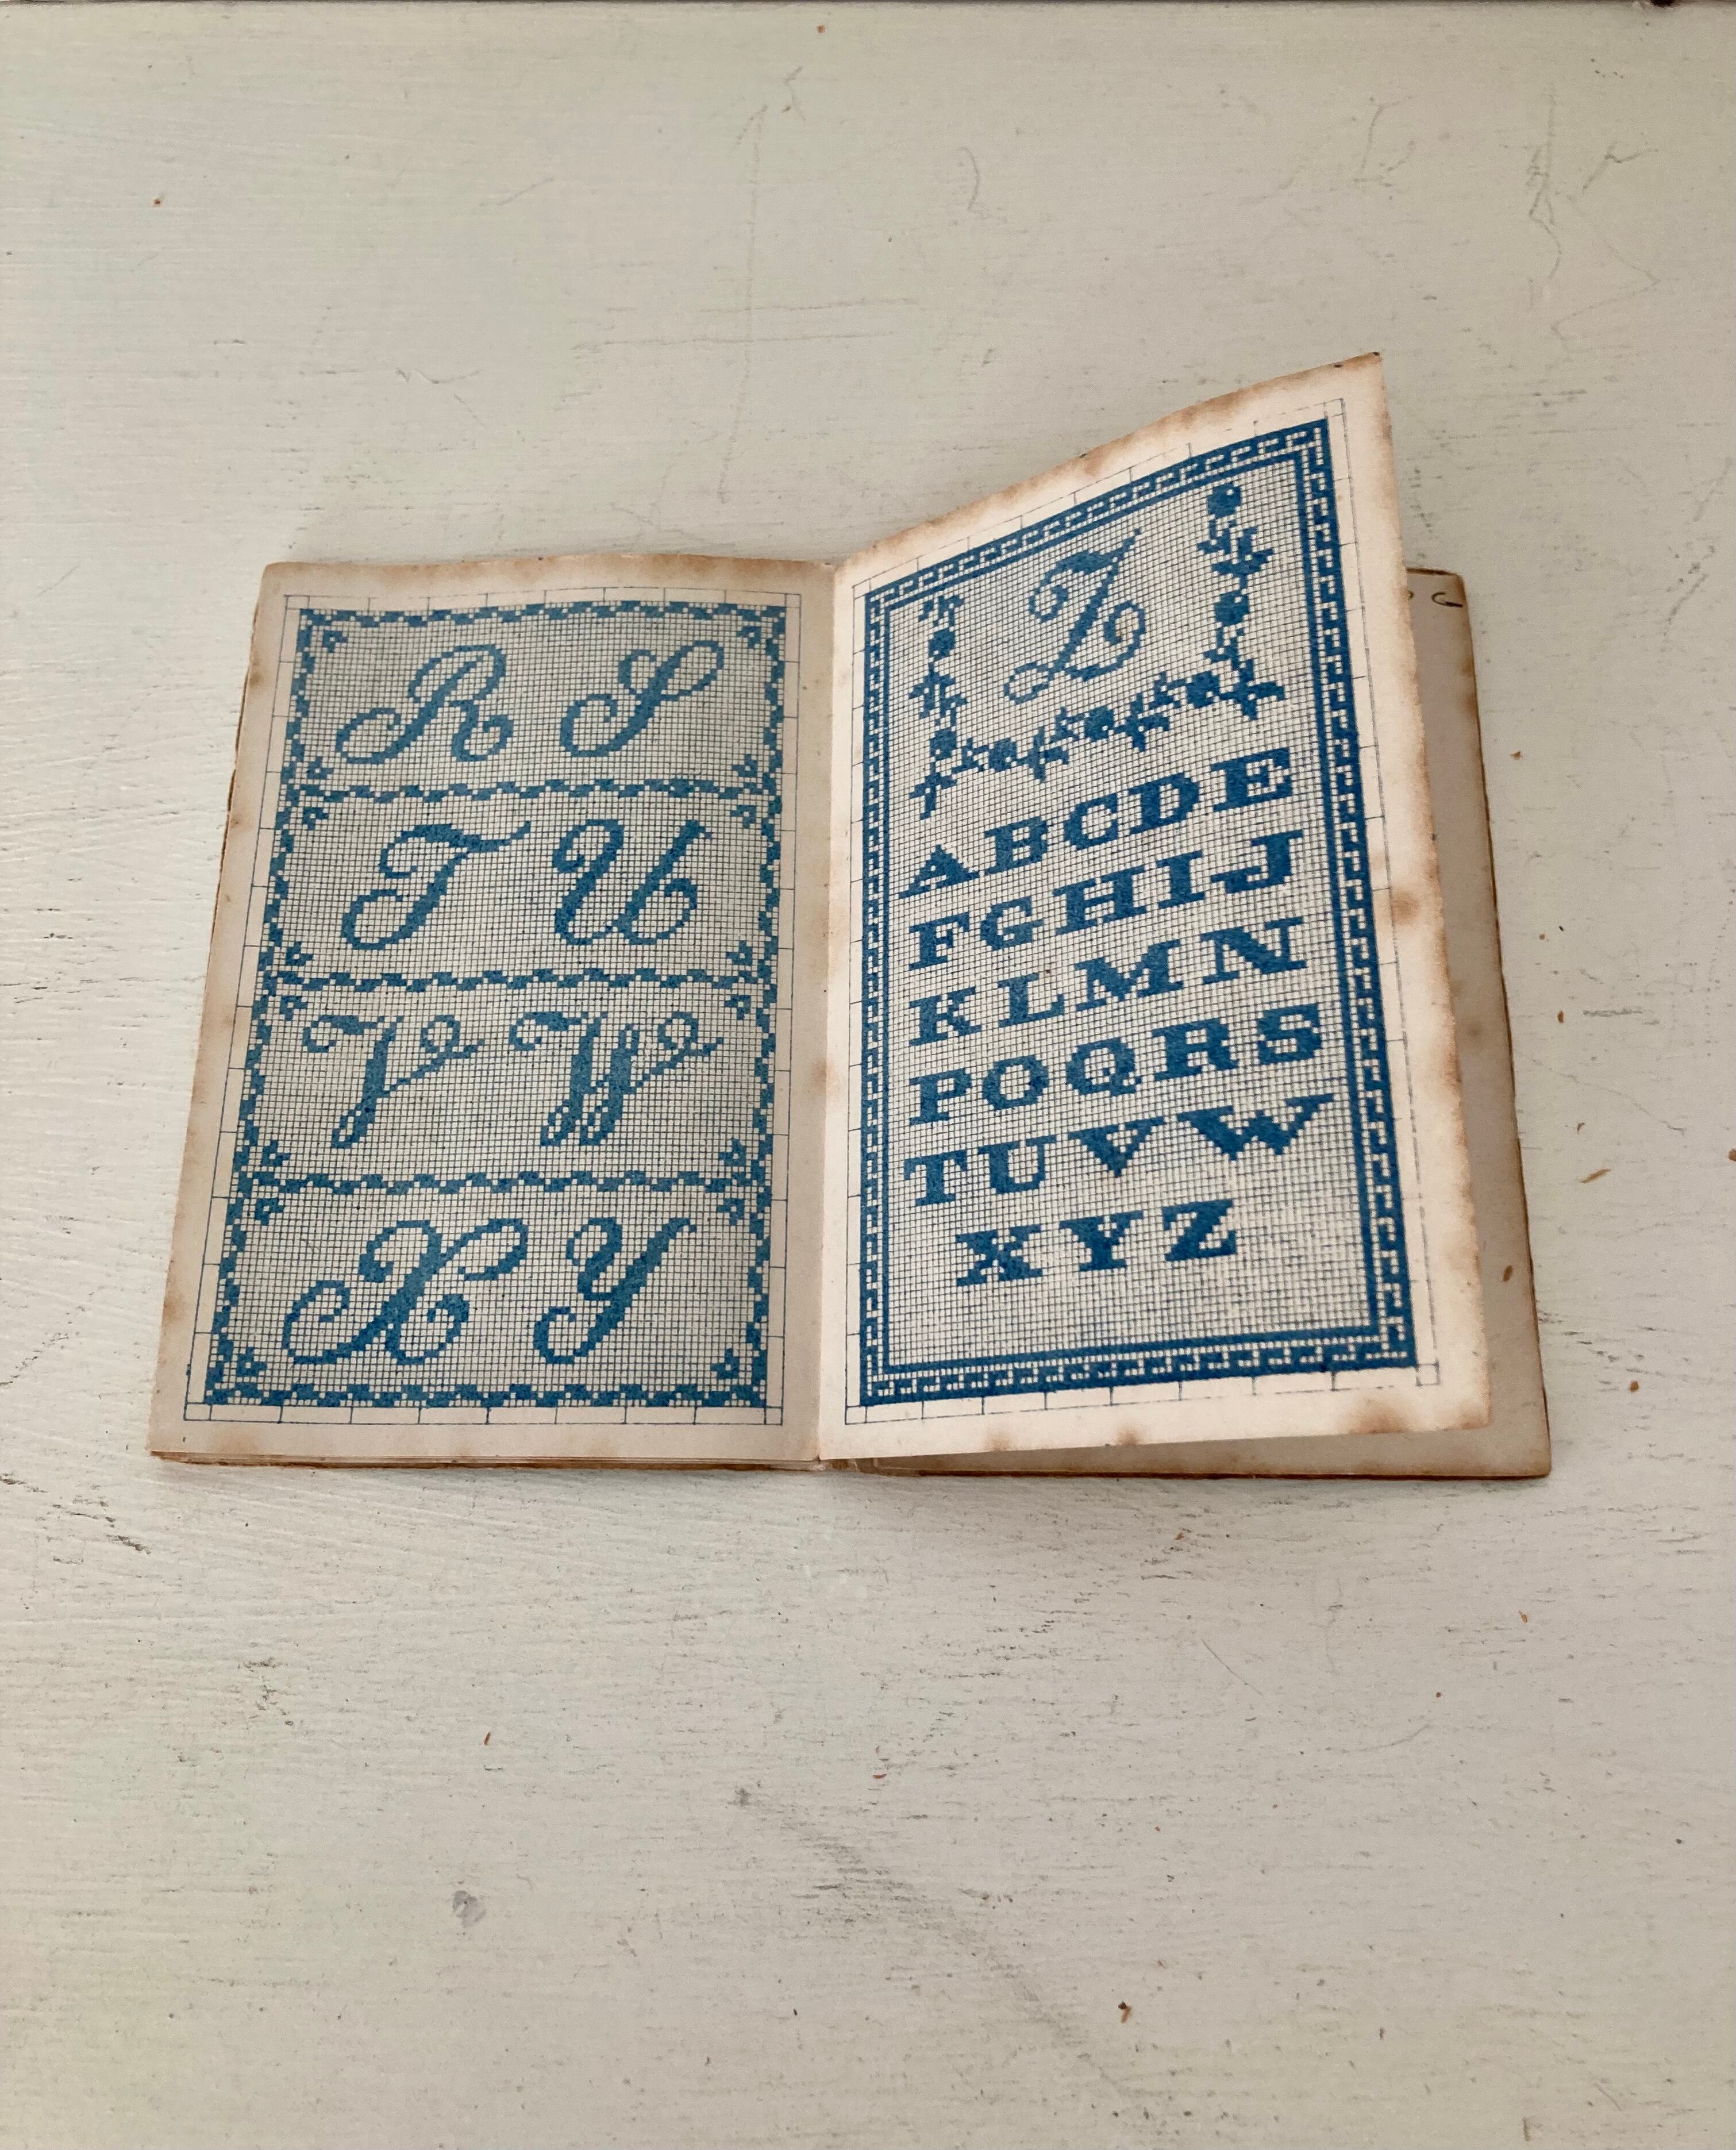 R S
T U
V W
X Y
Z
ABCDE
FGHIJ
KLMN
POQRS
TUVW
XYZ